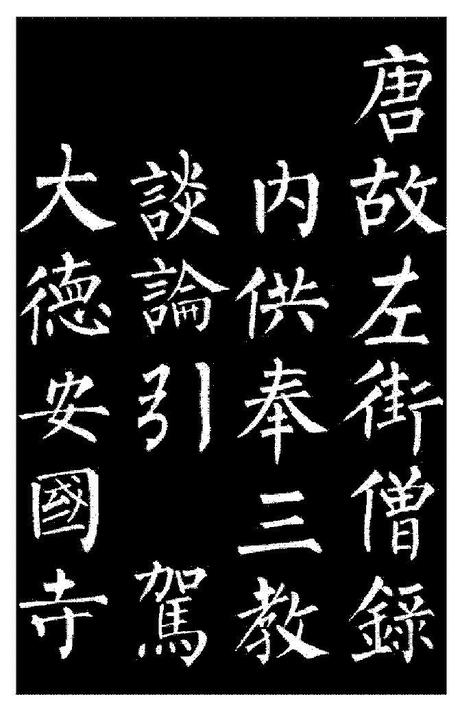 唐故左街僧錄
内供奉三教
談論引 駕
大德安國寺